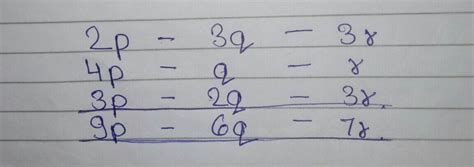 2p - 3q - 3r
4p - q - r
3p - 2q - 3r.
9p - 6q - 7r